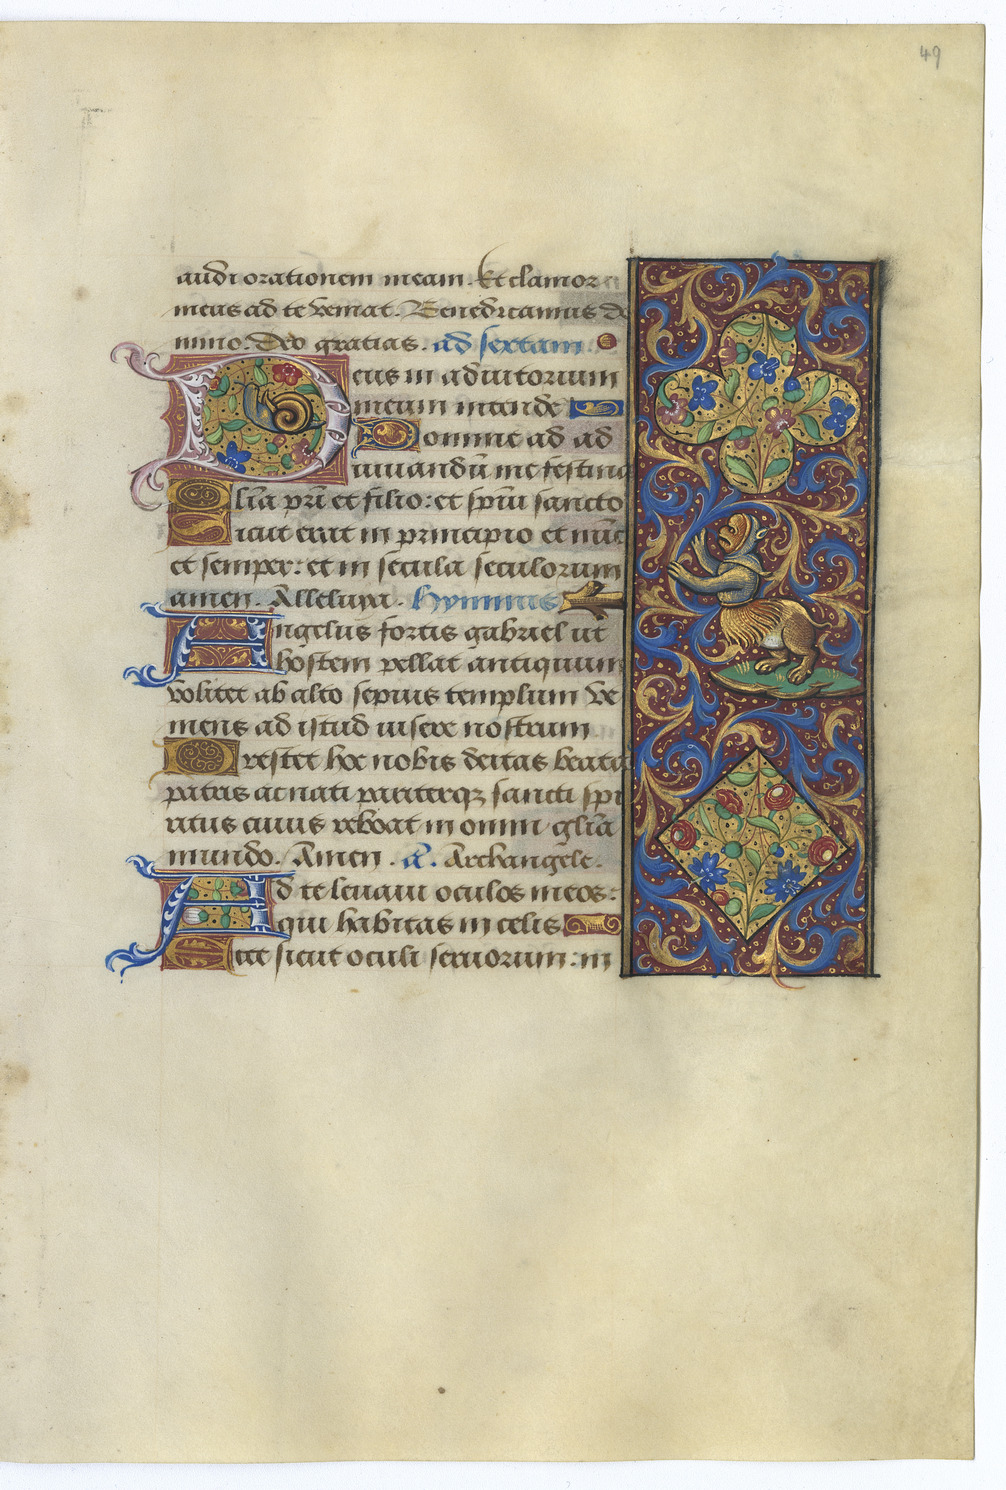 49
audi orationem meam. Et clamor
meus ad te veniat. Benedicamus do
mino. Deo gratias. ad sextam.
Deus in adiutorium
meum intende
Domine ad ad
iuuandū me festina
Glīa pr̄i et filio: et sp̄iu sancto
Sicut erat in principio et nūc
et semper: et in secula seculorum
amen. Alleluya. Hymnus
Angelus fortis gabriel ut
hostem pellat antiquum
volitet ab alto sepius templum ve
niens ad istud uisere nostrum
Prestet hoc nobis deitas beata
patris ac nati pariterqꝫ sancti spi
ritus cuius reboat in omni gl̄ia
mundo. Amen. a. Archangele.
Ad te leuaui oculos meos:
qui habitas in celis
Ecce sicut oculi seruorum: in